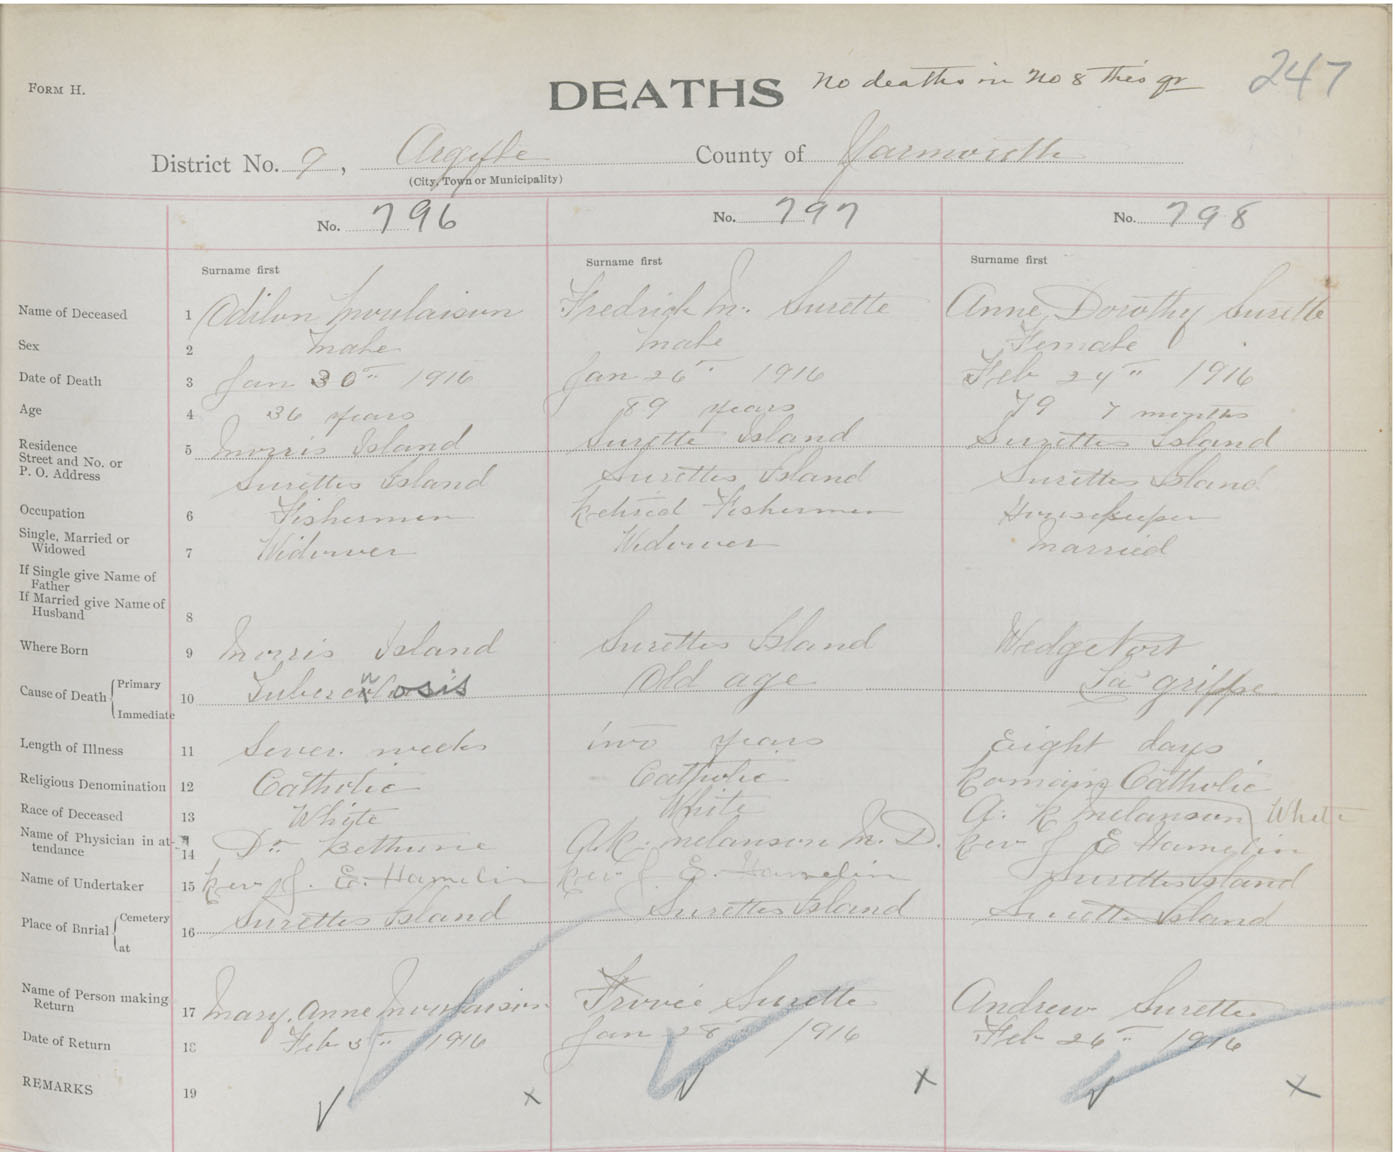 FORM H.
DEATHS No deaths in No 8 this qr 247
District No. 9, Argyle County of Yarmouth
(City, Town or Municipality)
No. 796 No. 797 No. 798
Surname first Surname first Surname first
Name of Deceased 1 Odilon Moulaison Fredrick M. Surette Anne Dorothy Surette
Sex 2 Male Male Female
Date of Death 3 Jan 30th 1916 Jan 26th 1916 Feb 24th 1916
Age 4 36 years 89 years 79 7 months
Residence
Street and No. or
P. O. Address
5 Morris Island Surette Island Surettes Island
Surettes Island Surettes Island Surettes Island
Occupation 6 Fishermen Retired Fishermen Housekeeper
Single, Married or
Widowed
7 Widower Widower Married
If Single give Name of
Father
If Married give Name of
Husband
8
Where Born 9 Morris Island Surettes Island Wedgeport
Cause of Death Primary
Immediate
10 Old age La grippe
Length of Illness 11 weeks two years Eight days
Religious Denomination 12 Catholic Catholic Romain Catholic
Race of Deceased 13 White White A. R Melanson White
Name of Physician in at-
tendance
14 Dr. Bethune A.R. Melanson M. D. Rev J E Hamelin
Name of Undertaker 15 Rev J. E. Hamelin Rev J E. Hamelin Surettes Island
Place of Burial Cemetery
at
16 Surettes Island Surettes Island Surettes Island
Name of Person making
Return
17 Mary Anne Moulaison Surette Andrew Surette
Date of Return 18 Feb 3rd 1916 Jan 28th 1916 Feb 26th 1916
REMARKS 19 x x x